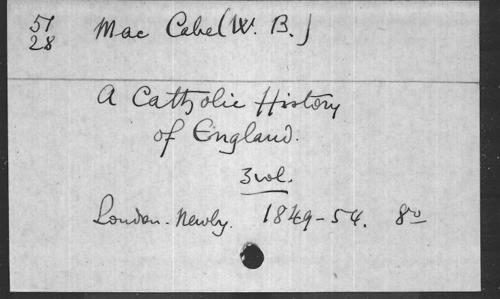 51
28
Mac Cabe (W. B.)
A Catholic History
of England.
3 vol.
London. Newby. 1849-54. 8º